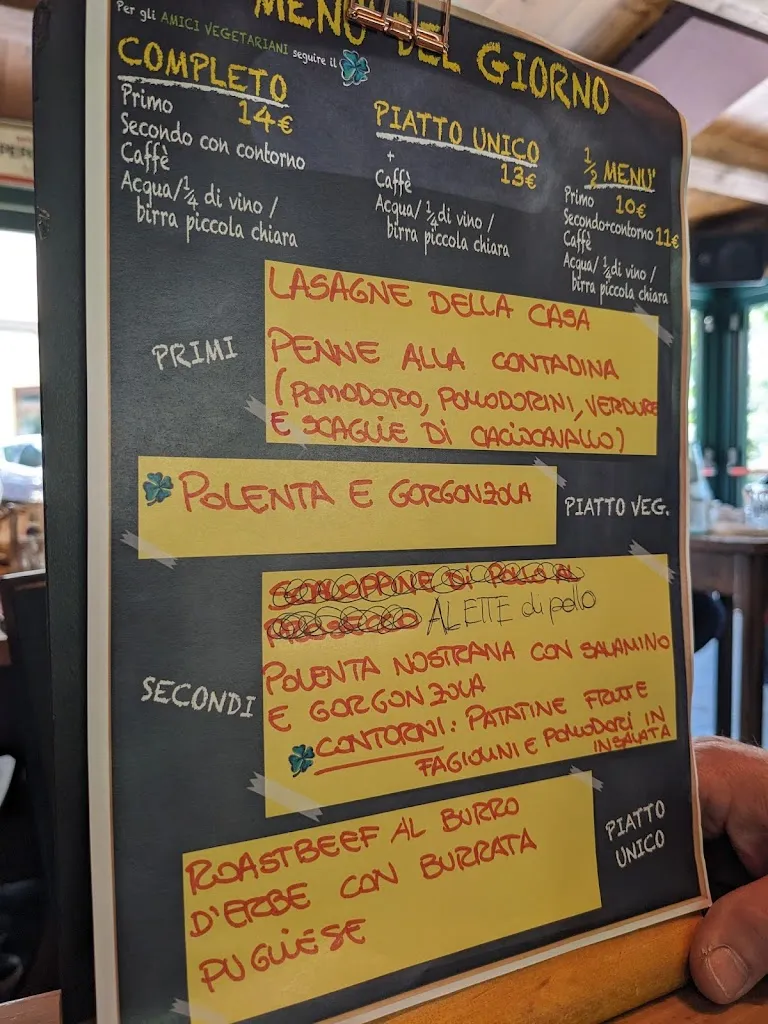 Per gli AMICI VEGETARIANI seguire il
MENÙ DEL GIORNO
COMPLETO
14€
Primo
Secondo con contorno
Caffè
Acqua/¼ di vino /
birra piccola chiara
PIATTO UNICO
13€
+
Caffè
Acqua/ ¼ di vino /
birra piccola chiara
½ MENU'
Primo 10€
Secondo+contorno 11€
Caffè
Acqua/ ¼ di vino /
birra piccola chiara
PRIMI
LASAGNE DELLA CASA
PENNE ALLA CONTADINA
(POMODORO, POMODORINI, VERDURE
E SCAGLIE DI CACIOCAVALLO)
POLENTA E GORGONZOLA
PIATTO VEG.
SECONDI
SCALOPPINE DI POLLO AL
PROSECCO ALETTE di pollo
POLENTA NOSTRANA CON SALAMINO
E GORGONZOLA
CONTORNI: PATATINE FRITTE
FAGIOLINI E POMODORI IN
INSALATA
ROASTBEEF AL BURRO
D'ERBE CON BURRATA
PUGLIESE
PIATTO
UNICO